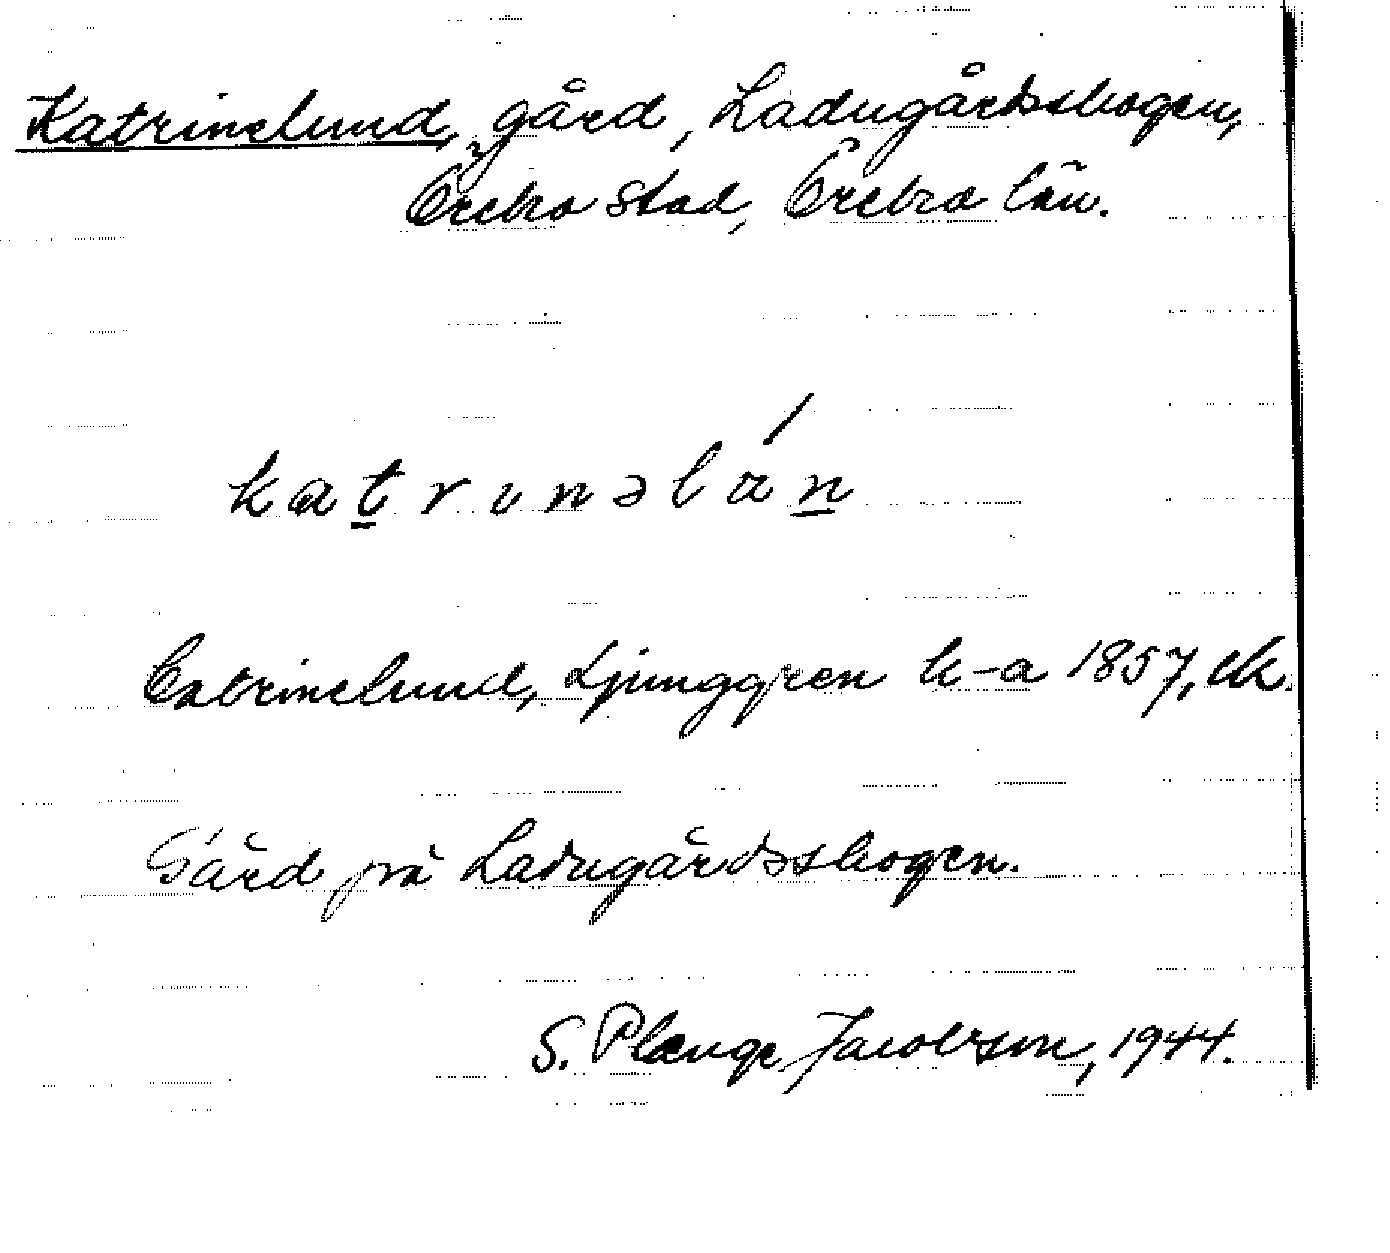 Katrinelund, gård, Ladugårdsskogen,
Örebro stad, Örebro län.
Catrinelund, Ljunggren k-a 1857, ek.
Gård på Ladugårdsskogen.
S. Plænge Jacobson, 1944.